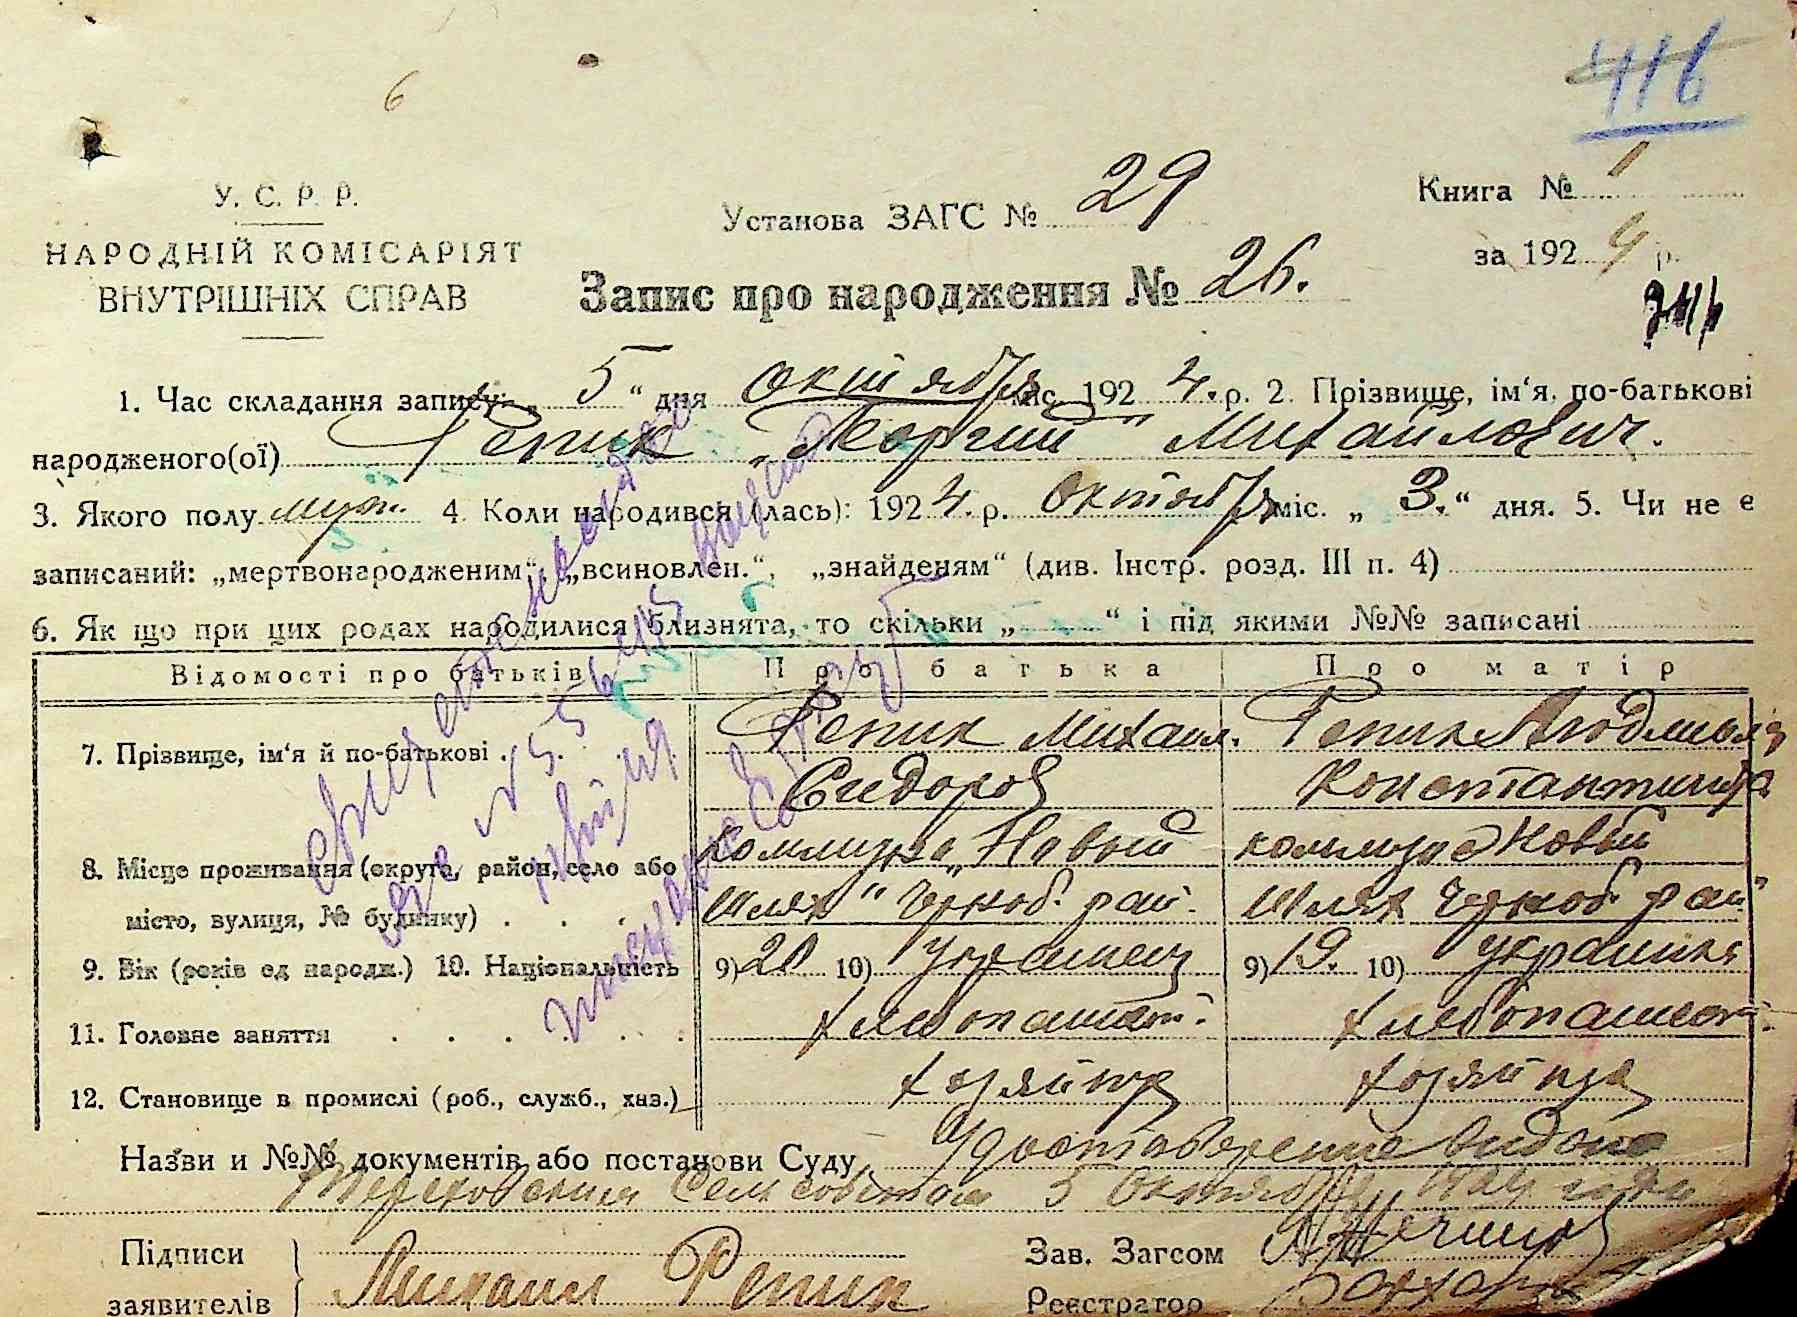 416
6
У. С. Р. Р.
НАРОДНІЙ КОМІСАРІЯТ
ВНУТРІШНІХ СПРАВ
Установа ЗАГС № 29
Книга № 1
за 1924 р.
Запис про народження № 26.
1. Час складання запису: „ 5 “ дня октября міс. 1924. р. 2. Прізвище, ім‘я, по-батькові
народженого(ої) Репик „Георгий“ Михайлович.
3. Якого полу муж. 4. Коли народився (лась): 1924. р. Октября міс. „ 3. “ дня. 5. Чи не є
записаний: „мертвонародженим“, „всиновлен.“, „знайденям“ (див. Інстр. розд. III п. 4)
6. Як що при цих родах народилися близнята, то скільки „ “ і під якими №№ записані
Відомості про батьків Про батька Про матір
7. Прізвище, ім‘я й по-батькові . . Репик Михаил. Репик Людмила
Сидоров Константинова
8. Місце проживання (округа, район, село або Коммуна „Новый коммуна Новый
місто, вулиця, № будинку) . . . Шлях“ Черноб. рай. Шлях Черноб. рай
9. Вік (років од народж.) 10. Національність 9) 20 10) украинец 9) 19. 10) украинка
11. Головне заняття . . . . . . хлебопашест. хлебопашест.
12. Становище в промислі (роб., служб., хаз.) хозяйка хозяйка
Назви и №№ документів або постанови Суду, Удостоверение видано
Сельсоветом 5 Октября 1924 года
Підписи
заявителів Михаил Репик
Зав. Загсом
Реєстратор